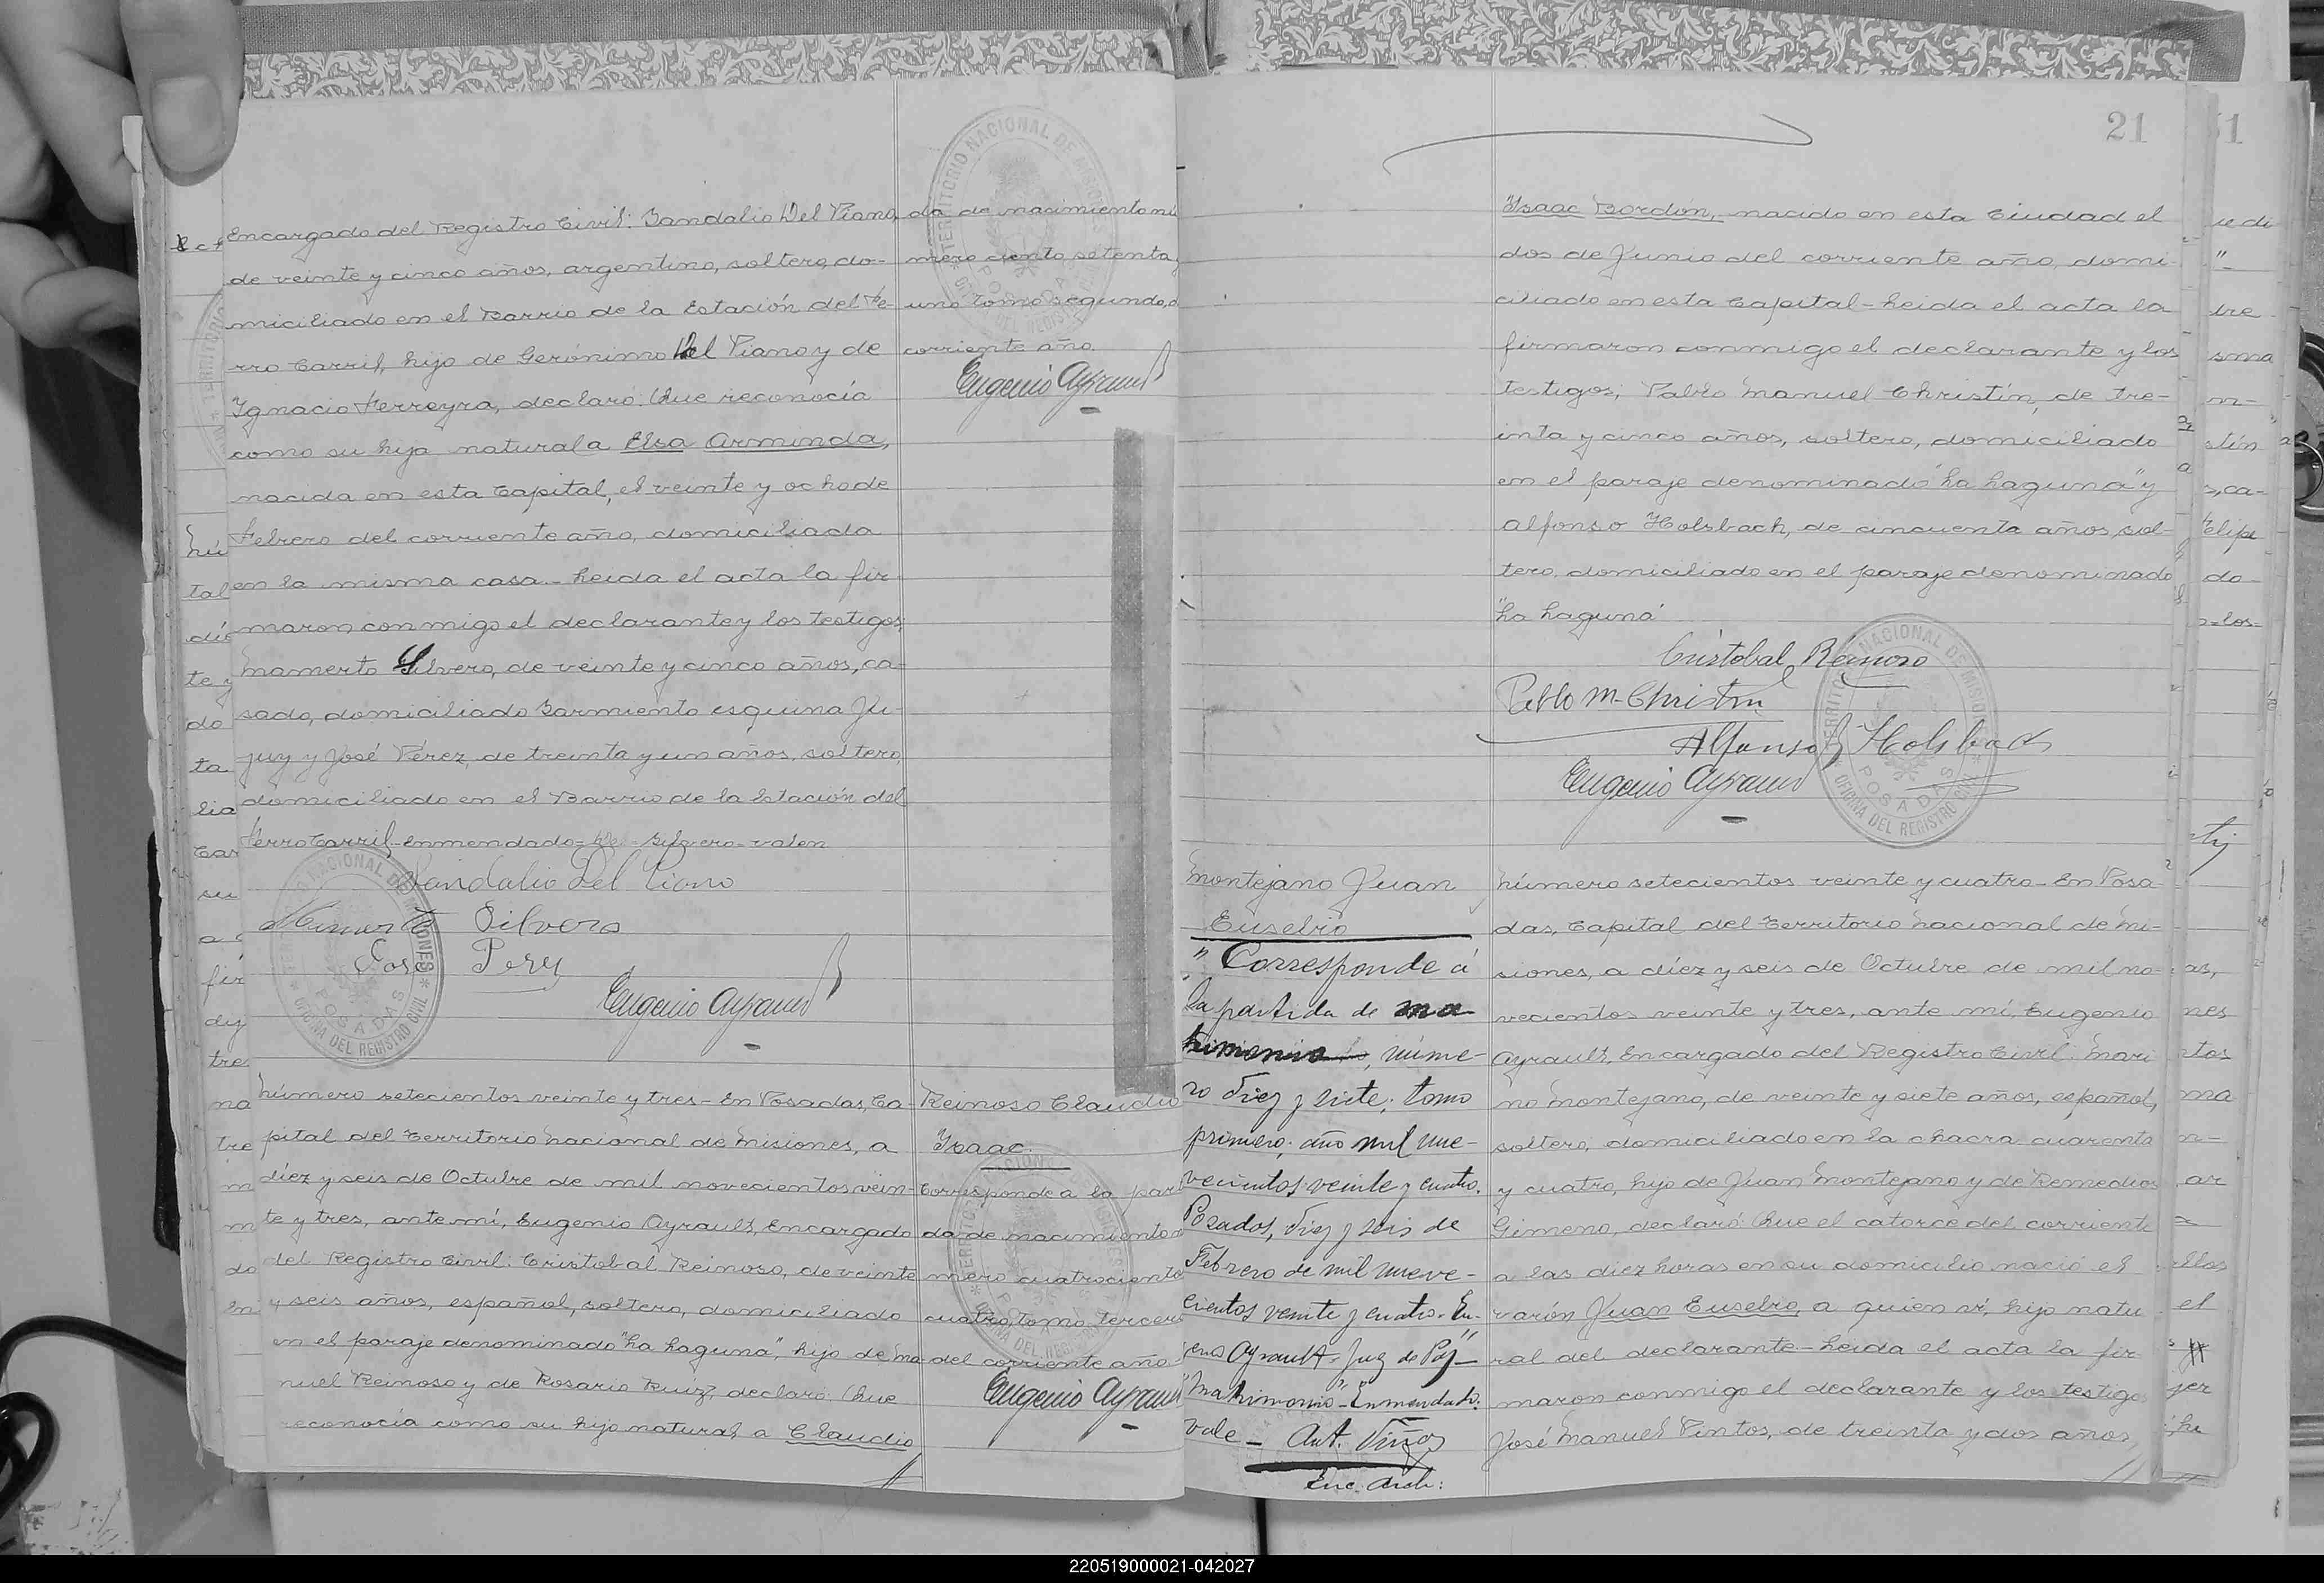 Encargado del Registro Civil: Sandalio Del Piano,
de veinte y cinco años, argentino, soltero, do-
miciliado en el Barrio de la Estación del Fe-
rro Carril, hijo de Gerónimo Del Piano y de
Ignacia Ferreyra, declaró: Que reconocía
como su hija natural a Elsa Arminda,
nacida en esta Capital, el veinte y ocho de
Febrero del corriente año, domiciliada
en la misma casa.- Leida el acta la fir-
maron conmigo el declarante y los testigos,
Mamerto Silvero, de veinte y cinco años, ca-
sado, domiciliado Sarmiento esquina Ju-
juy y José Pérez, de treinta y un años, soltero,
domiciliado en el Barrio de la Estación del
Ferro Carril-Enmendado= De - Silvero=valen
Sandalio Del Piano
Silvero
José Perez
Eugenio Ayrault
da de nacimiento nú
mero ciento setenta y
uno tomo segundo, d
corriente año.
Eugenio Ayrault
Número setecientos veinte y tres- En Posadas, Ca-
pital del Territorio Nacional de Misiones, a
diez y seis de Octubre de mil novecientos vein-
te y tres, ante mí, Eugenio Ayrault, Encargado
del Registro Civil: Cristobal Reinoso, de veinte
y seis años, español, soltero, domiciliado
en el paraje denominado "La Laguna", hijo de Ma-
nuel Reinoso y de Rosario Ruíz, declaró: Que
reconocía como su hijo natural a Claudio
Reinoso Claudio
Isaac.
Corresponde a la par
da de nacimiento n
mero cuatrociento
cuatro, tomo tercero
del corriente año-
Eugenio Ayrault
21
Isaac Bordón, nacido en esta Ciudad el
dos de Junio del corriente año, domi-
ciliado en esta Capital-Leida el acta la
firmaron conmigo el declarante y los
testigos; Pablo Manuel Christín, de tre-
inta y cinco años, soltero, domiciliado
en el paraje denominado "La Laguna" y
Alfonso Holsbach, de cincuenta años, sol-
tero, domiciliado en el paraje denominado
"La Laguna"
Cristobal Reinoso
Pablo M. Christin
Alfonso Holsbach
Eugenio Ayrault
TERRITORIO NACIONAL DE MISIONES
POSADAS
OFICINA DEL REGISTRO CIVIL
Montejano Juan
Eusebio
"Corresponde á
la partida de ma
trimonio, núme-
ro diez y siete; tomo
primero; año mil nue-
vecientos veinte y cuatro.
Posadas, diez y seis de
Febrero de mil nueve-
cientos veinte y cuatro. Eu-
genio Ayrault. Juez de Paz"
"Matrimonio"- Enmendado:
vale - Ant. Viñas
Enc. Arch:
Número setecientos veinte y cuatro- En Posa-
das, Capital del Territorio Nacional de Mi-
siones, a diez y seis de Octubre de mil no-
vecientos veinte y tres, ante mí, Eugenio
Ayrault, Encargado del Registro Civil: Mari-
no Montejano, de veinte y siete años, español,
soltero, domiciliado en la chacra cuarenta
y cuatro, hijo de Juan Montejano y de Remedios
Gimeno, declaró: Que el catorce del corriente
a las diez horas en su domicilio nació el
varón Juan Eusebio, a quien ví, hijo natu
ral del declarante-Leida el acta la fir
maron conmigo el declarante y los testigos
José Manuel Pintos, de treinta y dos años,
220519000021-042027